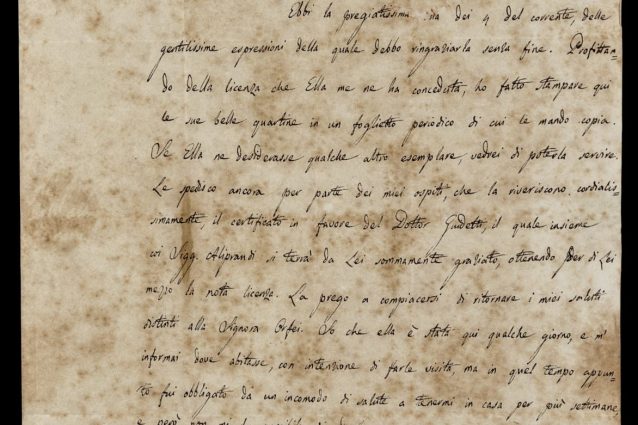 Ebbi la pregiatissima sua dei 9 del corrente, delle
gentilissime espressioni della quale debbo ringraziarla senza fine. Profittan-
do della licenza che Ella me ne ha conceduta, ho fatto stampare qui
le sue belle quartine in un foglietto periodico di cui le mando copia.
Se Ella ne desiderasse qualche altro esemplare, vedrei di poterla servire.
Le spedisco ancora per parte dei miei ospiti, che la riveriscono cordialis-
simamente, il certificato in favore del Dottor Guidetti, il quale insieme
coi Sigg. Aliprandi si terrà da Lei sommamente graziato, ottenendo per di Lei
mezzo la nota licenza. La prego a compiacersi di ritornare i miei saluti
distinti alla Signora Orfei. So che ella è stata qui qualche giorno, e m'
informai dove abitasse, con intenzione di farle visita, ma in quel tempo appun-
to fui obbligato da un incomodo di salute a tenermi in casa per più settimane,
e però non